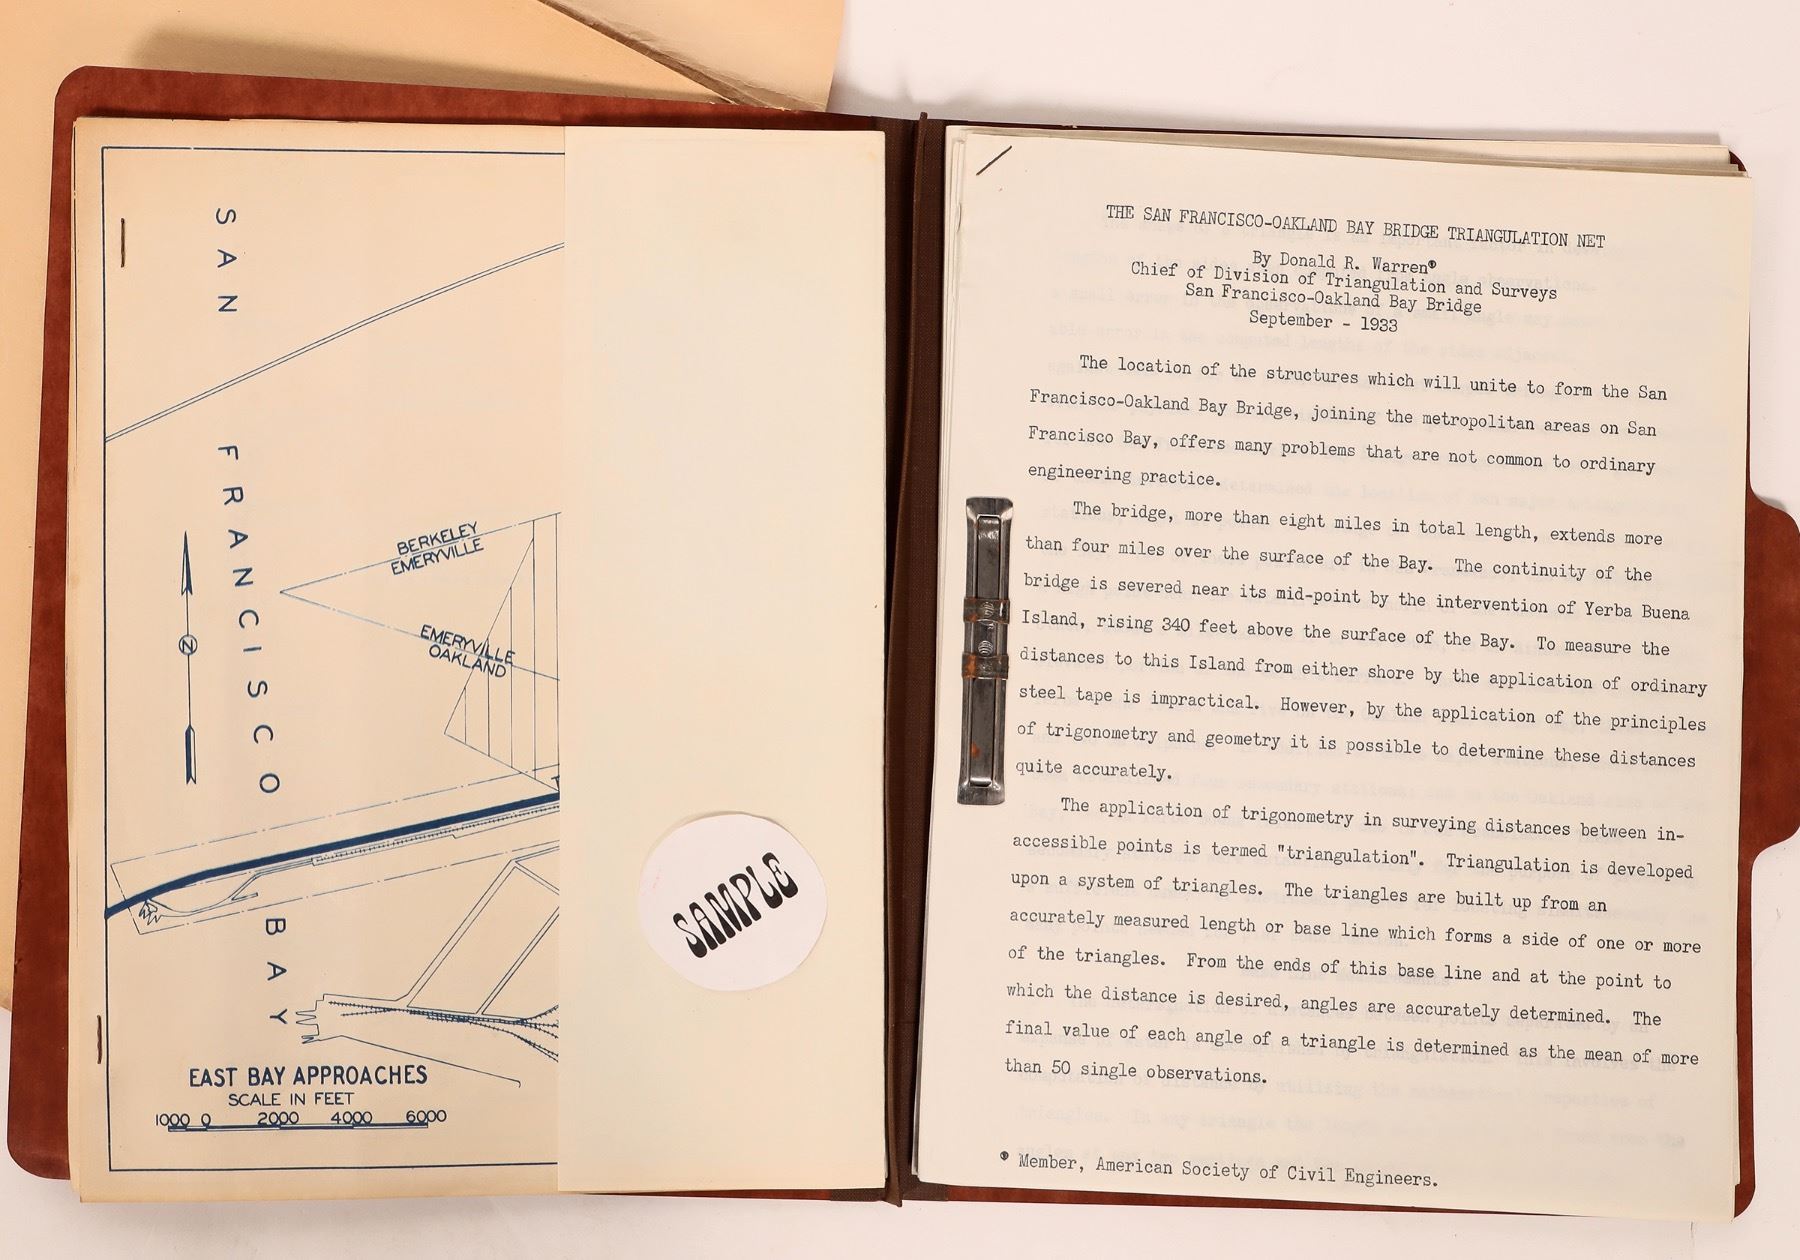 SAN
FRANCISCO
BAY
N
BERKELEY
EMERYVILLE
EMERYVILLE
OAKLAND
EAST BAY APPROACHES
SCALE IN FEET
1000 0 2000 4000 6000
SAMPLE
THE SAN FRANCISCO-OAKLAND BAY BRIDGE TRIANGULATION NET
By Donald R. Warren*
Chief of Division of Triangulation and Surveys
San Francisco-Oakland Bay Bridge
September - 1933
The location of the structures which will unite to form the San
Francisco-Oakland Bay Bridge, joining the metropolitan areas on San
Francisco Bay, offers many problems that are not common to ordinary
engineering practice.
The bridge, more than eight miles in total length, extends more
than four miles over the surface of the Bay. The continuity of the
bridge is severed near its mid-point by the intervention of Yerba Buena
Island, rising 340 feet above the surface of the Bay. To measure the
distances to this Island from either shore by the application of ordinary
steel tape is impractical. However, by the application of the principles
of trigonometry and geometry it is possible to determine these distances
quite accurately.
The application of trigonometry in surveying distances between in-
accessible points is termed "triangulation". Triangulation is developed
upon a system of triangles. The triangles are built up from an
accurately measured length or base line which forms a side of one or more
of the triangles. From the ends of this base line and at the point to
which the distance is desired, angles are accurately determined. The
final value of each angle of a triangle is determined as the mean of more
than 50 single observations.
* Member, American Society of Civil Engineers.